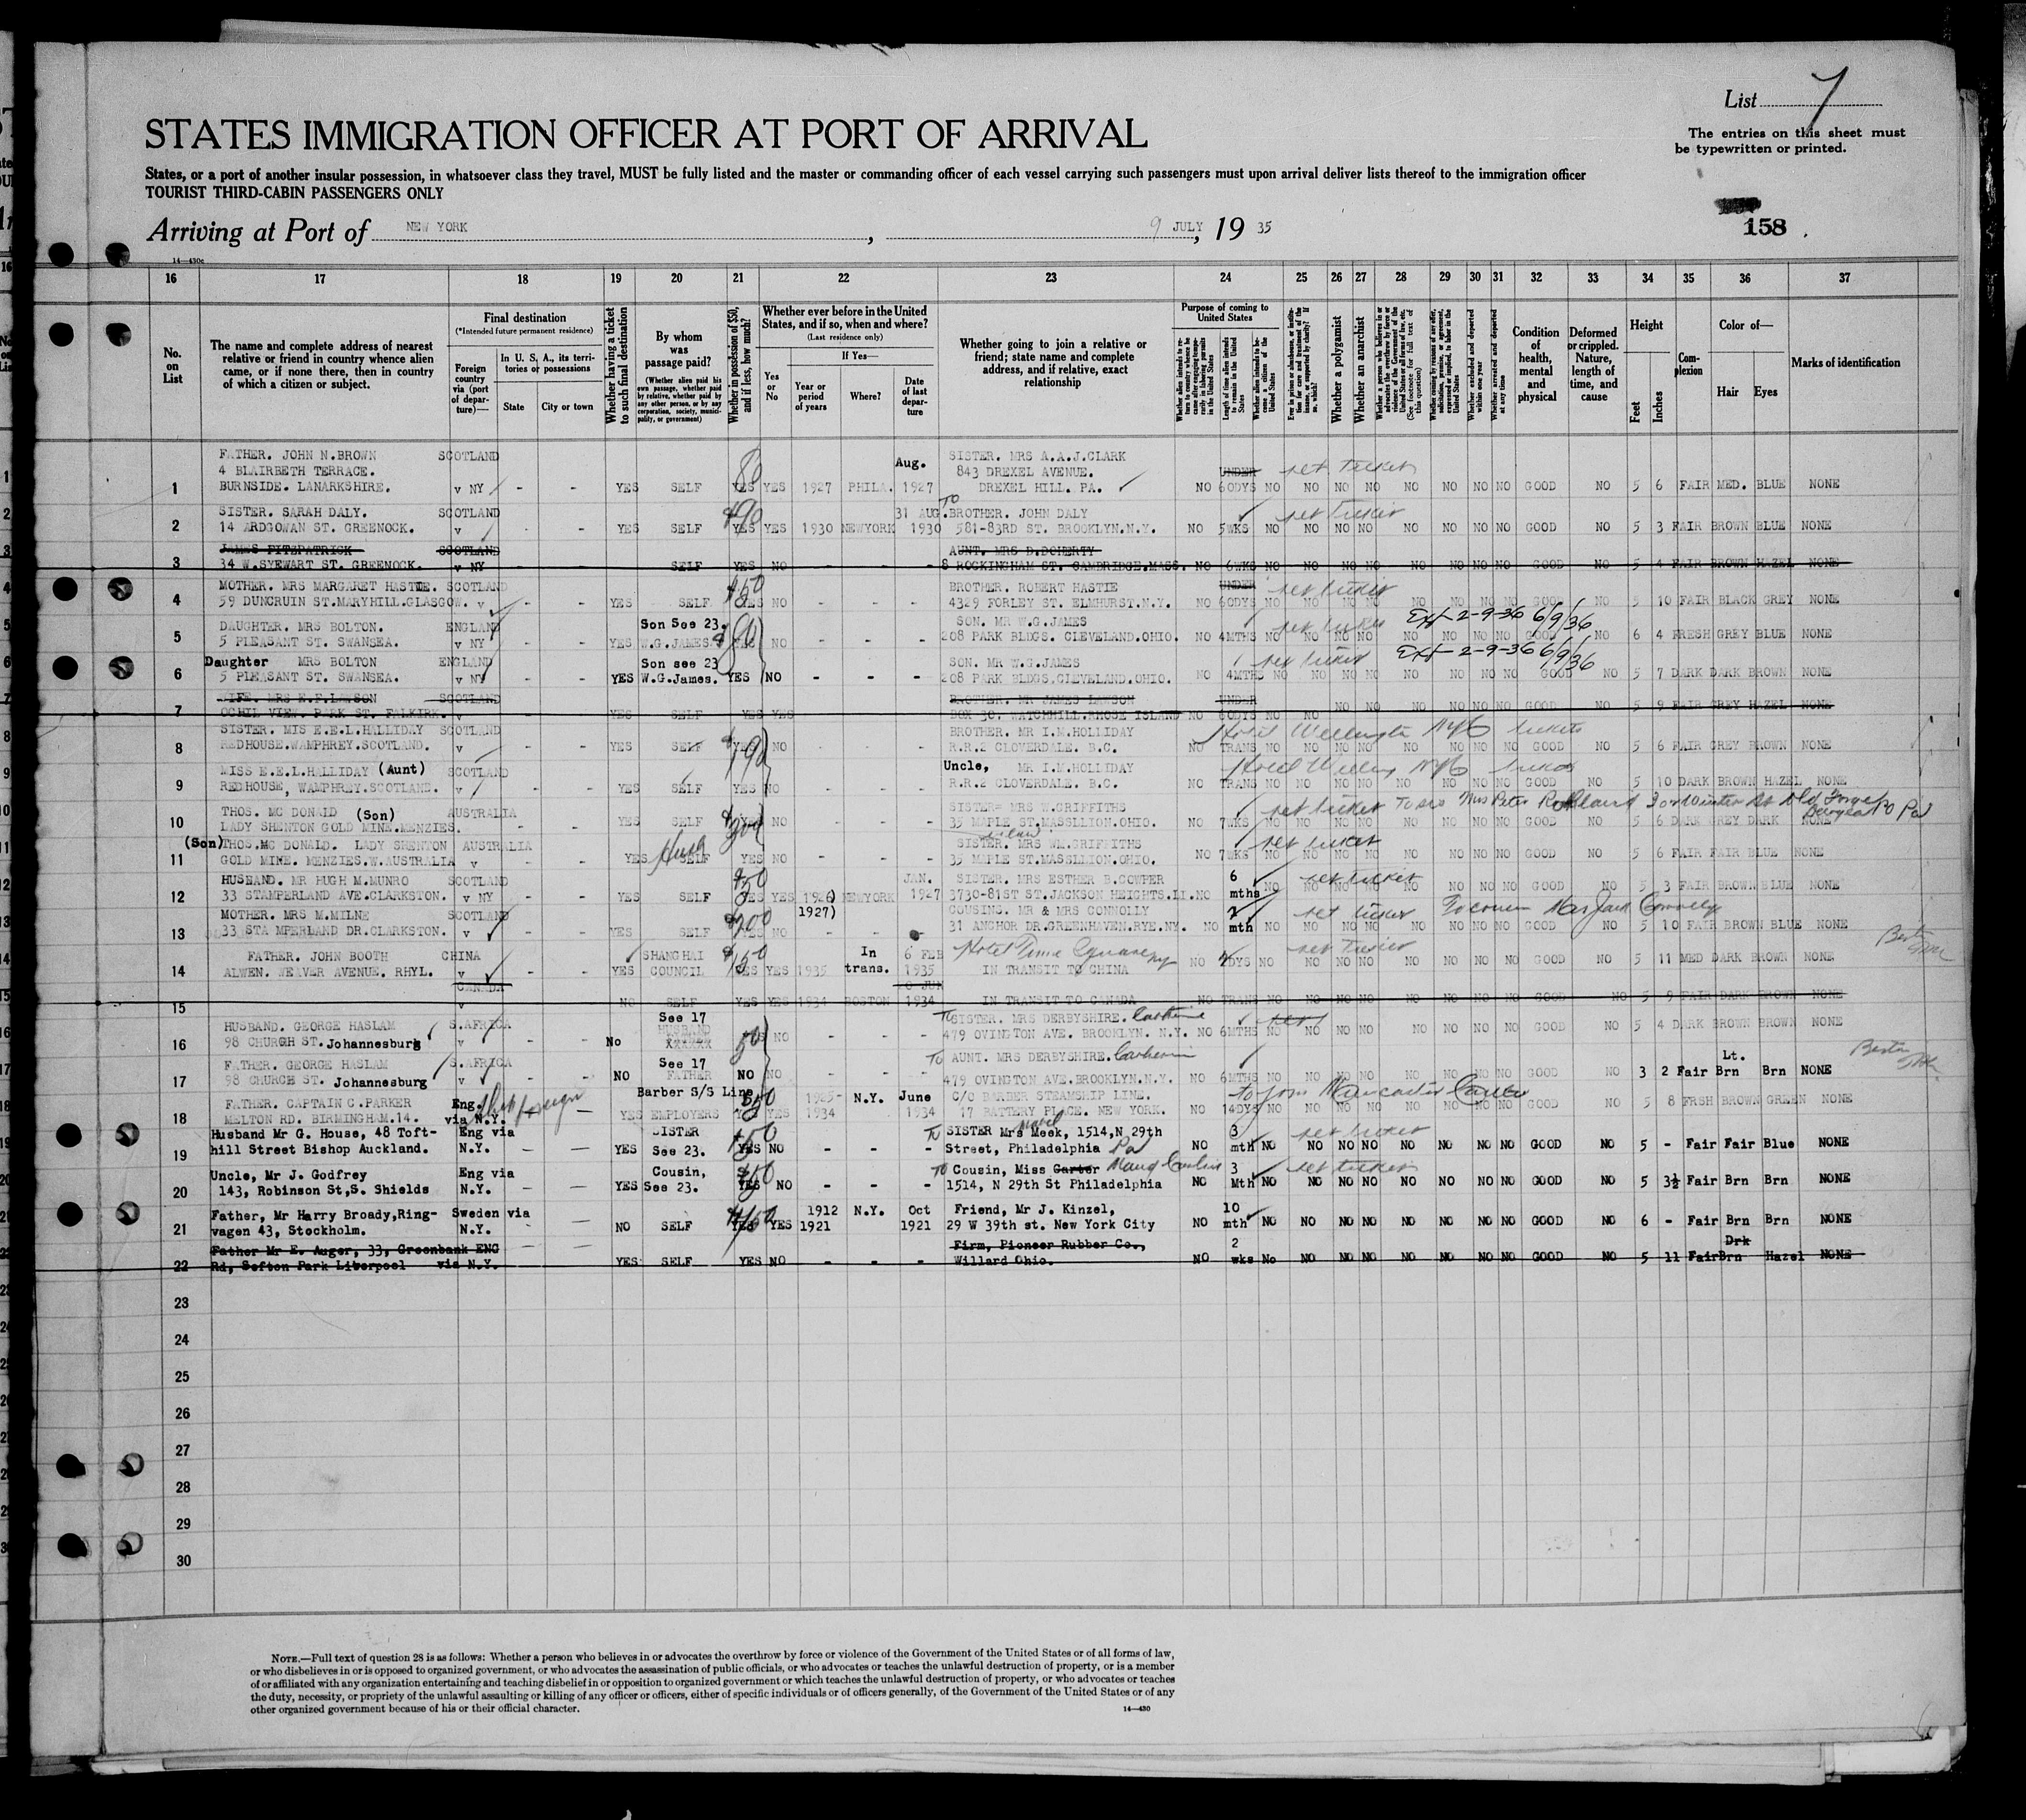 List 7
The entries on this sheet must
be typewritten or printed.
STATES IMMIGRATION OFFICER AT PORT OF ARRIVAL
States, or a port of another insular possession, in whatsoever class they travel, MUST be fully listed and the master or commanding officer of each vessel carrying such passengers must upon arrival deliver lists thereof to the immigration officer
TOURIST THIRD-CABIN PASSENGERS ONLY
Arriving at Port of NEW YORK, 9 JULY, 19 35
158
14—430c
16 17 18 19 20 21 22 23 24 25 26 27 28 29 30 31 32 33 34 35 36 37
No. on List
The name and complete address of nearest relative or friend in country whence alien came, or if none there, then in country of which a citizen or subject.
Final destination
(*Intended future permanent residence)
Foreign country via (port of departure)—
In U. S. A., its territories or possessions
State City or town
Whether having a ticket to such final destination
By whom was passage paid?
(Whether alien paid his own passage, whether paid by relative, whether paid by any other person, or by any corporation, society, municipality, or government)
Whether in possession of $50, and if less, how much?
Whether ever before in the United States, and if so, when and where?
(Last residence only)
Yes or No
If Yes—
Year or period of years
Where?
Date of last departure
Whether going to join a relative or friend; state name and complete address, and if relative, exact relationship
Purpose of coming to United States
Whether a polygamist
Whether an anarchist
Condition of health, mental and physical
Deformed or crippled. Nature, length of time, and cause
Height
Feet Inches
Complexion
Color of—
Hair Eyes
Marks of identification
FATHER. JOHN N.BROWN SCOTLAND Aug. SISTER. MRS A.A.J.CLARK
4 BLAIRBETH TERRACE. 843 DREXEL AVENUE. UNDER ret ticket
1 BURNSIDE. LANARKSHIRE. v NY - - YES SELF YES YES 1927 PHILA. 1927 DREXEL HILL. PA. NO 60DYS NO NO NO NO NO NO NO NO GOOD NO 5 6 FAIR MED. BLUE NONE
SISTER. SARAH DALY. SCOTLAND 31 AUG. TO BROTHER. JOHN DALY ret ticket
2 14 ARDGOWAN ST. GREENOCK. v - - YES SELF YES YES 1930 NEWYORK 1930 581-83RD ST. BROOKLYN.N.Y. NO 5WKS NO NO NO NO NO NO NO NO GOOD NO 5 3 FAIR BROWN BLUE NONE
JAMES FITZPATRICK SCOTLAND AUNT. MRS D.DOHERTY
3 34 W.SYEWART ST. GREENOCK. v NY SELF YES NO 8 ROCKINGHAM ST. CAMBRIDGE.MASS. NO 6WKS NO NO NO NO NO NO NO NO GOOD NO 5 4 FAIR BROWN HAZEL NONE
MOTHER. MRS MARGARET HASTIE. SCOTLAND BROTHER. ROBERT HASTIE UNDER ret ticket
4 59 DUNCRUIN ST.MARYHILL.GLASGOW. v - - YES SELF YES NO - - - 4329 FORLEY ST. ELMHURST.N.Y. NO 60DYS NO NO NO NO NO NO NO NO GOOD NO 5 10 FAIR BLACK GREY NONE
DAUGHTER. MRS BOLTON. ENGLAND Son See 23. SON. MR W.G.JAMES ret ticket Ext 2-9-36 6/9/36
5 5 PLEASANT ST. SWANSEA. v NY - - YES W.G.JAMES YES NO - - - 208 PARK BLDGS. CLEVELAND.OHIO. NO 4MTHS NO NO NO NO NO NO NO NO GOOD NO 6 4 FRESH GREY BLUE NONE
Daughter MRS BOLTON ENGLAND Son see 23 SON. MR W.G.JAMES ret ticket Ext 2-9-36 6/9/36
6 5 PLEASANT ST. SWANSEA. v NY - - YES W.G.James. YES NO - - - 208 PARK BLDGS.CLEVELAND.OHIO. NO 4MTHS NO NO NO NO NO NO NO NO GOOD NO 5 7 DARK DARK BROWN NONE
WIFE. MRS E.F.LAWSON SCOTLAND BROTHER. MR JAMES LAWSON UNDER
7 OCHIL VIEW. PARK ST. FALKIRK. v YES SELF YES YES BOX 30. WATCHHILL.RHODE ISLAND NO 60DYS NO NO NO NO NO NO NO NO GOOD NO 5 9 FAIR GREY HAZEL NONE
SISTER. MIS E.E.L.HALLIDAY SCOTLAND BROTHER. MR I.M.HOLLIDAY Hotel Wellington NYC tickets
8 REDHOUSE.WAMPHREY.SCOTLAND. v - - YES SELF YES NO - - - R.R.2 CLOVERDALE. B.C. NO TRANS NO NO NO NO NO NO NO NO GOOD NO 5 6 FAIR GREY BROWN NONE
MISS E.E.L.HALLIDAY (Aunt) SCOTLAND Uncle, MR I.M.HOLLIDAY
9 REDHOUSE, WAMPHREY.SCOTLAND. v - - YES SELF YES NO - - - R.R.2 CLOVERDALE. B.C. NO TRANS NO NO NO NO NO NO NO NO GOOD NO 5 10 DARK BROWN HAZEL NONE
THOS. MC DONALD (Son) AUSTRALIA SISTER= MRS W.GRIFFITHS ret ticket To see Mrs Peter
10 LADY SHENTON GOLD MINE.MENZIES. - - YES SELF YES NO - - - 35 MAPLE ST.MASSLLION.OHIO. NO 7WKS NO NO NO NO NO NO NO NO GOOD NO 5 6 DARK GREY DARK NONE
(Son) THOS.MC DONALD. LADY SHENTON AUSTRALIA in law SISTER. MRS WM.GRIFFITHS ret ticket
11 GOLD MINE. MENZIES.W.AUSTRALIA v - - YES SELF YES NO - - - 35 MAPLE ST.MASSLLION.OHIO. NO 7WKS NO NO NO NO NO NO NO NO GOOD NO 5 6 FAIR FAIR BLUE NONE
HUSBAND. MR HUGH M.MUNRO SCOTLAND JAN. SISTER. MRS ESTHER B.COWPER 6 ret ticket
12 33 STAMPERLAND AVE.CLARKSTON. v NY - - YES SELF YES YES 1926) NEWYORK 1927 3730-81ST ST.JACKSON HEIGHTS.LI. NO mths NO NO NO NO NO NO NO NO GOOD NO 5 3 FAIR BROWN BLUE NONE
MOTHER. MRS M.MILNE SCOTLAND 1927) COUSINS. MR & MRS CONNOLLY ret ticket
13 33 STA MPERLAND DR.CLARKSTON. v - - YES SELF YES NO - - - 31 ANCHOR DR.GREENHAVEN.RYE.NY. NO mth NO NO NO NO NO NO NO NO GOOD NO 5 10 FAIR BROWN BLUE NONE
FATHER. JOHN BOOTH CHINA SHANGHAI In 6 FEB Hotel Times Square NY ret ticket
14 ALWEN. WEAVER AVENUE. RHYL. v - - YES COUNCIL YES YES 1935 trans. 1935 IN TRANSIT TO CHINA NO DYS NO NO NO NO NO NO NO NO GOOD NO 5 11 MED DARK BROWN NONE
CANADA
15 v NO SELF YES YES 1934 BOSTON 1934 IN TRANSIT TO CANADA NO TRANS NO NO NO NO NO NO NO NO GOOD NO 5 9 FAIR DARK BROWN NONE
HUSBAND. GEORGE HASLAM S.AFRICA See 17 HUSBAND To SISTER. MRS DERBYSHIRE. Catherine
16 98 CHURCH ST. Johannesburg v - - No XXXXXX NO - - - 479 OVINGTON AVE. BROOKLYN. N.Y. NO 6MTHS NO NO NO NO NO NO NO NO GOOD NO 5 4 DARK BROWN BROWN NONE
FATHER. GEORGE HASLAM S.AFRICA See 17 To AUNT. MRS DERBYSHIRE. Catherine Lt.
17 98 CHURCH ST. Johannesburg v - - NO FATHER NO NO - - - 479 OVINGTON AVE.BROOKLYN.N.Y. NO 6MTHS NO NO NO NO NO NO NO NO GOOD NO 3 2 Fair Brn Brn NONE
FATHER. CAPTAIN C.PARKER Eng. Barber S/S Line 1925- N.Y. June C/O BARBER STEAMSHIP LINE. to join
18 MELTON RD. BIRMINGHAM.14. via N.Y. — YES EMPLOYERS YES YES 1934 1934 17 BATTERY PLACE. NEW YORK. NO 14DYS NO NO NO NO NO NO NO NO GOOD NO 5 8 FRSH BROWN GREEN NONE
Husband Mr G. House, 48 Toft- Eng via SISTER To SISTER Mrs Meek, 1514,N 29th 3 ret ticket
19 hill Street Bishop Auckland. N.Y. — — YES See 23. YES NO - - - Street, Philadelphia Pa NO mth NO NO NO NO NO NO NO NO GOOD NO 5 - Fair Fair Blue NONE
Uncle, Mr J. Godfrey Eng via Cousin, To Cousin, Miss Carter 3 ret ticket
20 143, Robinson St,S. Shields N.Y. — — YES See 23. YES NO - - - 1514, N 29th St Philadelphia NO Mth NO NO NO NO NO NO NO NO GOOD NO 5 3½ Fair Brn Brn NONE
Father, Mr Harry Broady,Ring- Sweden via 1912 N.Y. Oct Friend, Mr J. Kinzel, 10
21 vagen 43, Stockholm. N.Y. — NO SELF YES YES 1921 1921 29 W 39th st. New York City NO mth NO NO NO NO NO NO NO NO GOOD NO 6 - Fair Brn Brn NONE
Father Mr E. Auger, 33, Greenbank ENG Firm, Pioneer Rubber Co., 2 Drk
22 Rd, Sefton Park Liverpool via N.Y. YES SELF YES NO - - - Willard Ohio. NO wks No NO NO NO NO NO NO NO GOOD NO 5 11 Fair Brn Hazel NONE
23
24
25
26
27
28
29
30
NOTE.—Full text of question 28 is as follows: Whether a person who believes in or advocates the overthrow by force or violence of the Government of the United States or of all forms of law,
or who disbelieves in or is opposed to organized government, or who advocates the assassination of public officials, or who advocates or teaches the unlawful destruction of property, or is a member
of or affiliated with any organization entertaining and teaching disbelief in or opposition to organized government or which teaches the unlawful destruction of property, or who advocates or teaches
the duty, necessity, or propriety of the unlawful assaulting or killing of any officer or officers, either of specific individuals or of officers generally, of the Government of the United States or of any
other organized government because of his or their official character.
14—430